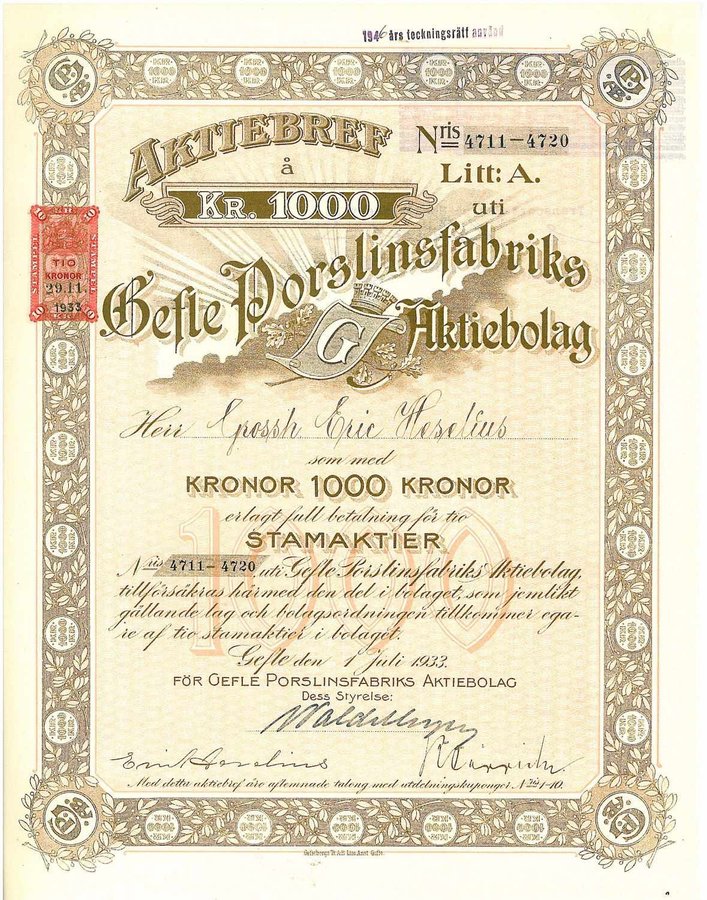 1946 års teckningsrätt använd
AKTIEBREF
å
KR. 1000
Nris 4711-4720
Litt: A.
uti
Gefle Porslinsfabriks
Aktiebolag
G
10 10
STÄMPEL STÄMPEL
TIO
KRONOR
29.11.
1933
10 10
Herr Grossh Eric Heselius
som med
KRONOR 1000 KRONOR
erlagt full betalning för tio
1000
STAMAKTIER
Nris 4711-4720 uti Gefle Porslinsfabriks Aktiebolag,
tillförsäkras härmed den del i bolaget, som jemlikt
gällande lag och bolagsordningen tillkommer ega-
re af tio stamaktier i bolaget.
Gefle den 1 Juli 1933.
FÖR GEFLE PORSLINSFABRIKS AKTIEBOLAG
Dess Styrelse:
Eric Heselius
Med detta aktiebref äro aflemnade talong med utdelningskuponger Nris 1-10.